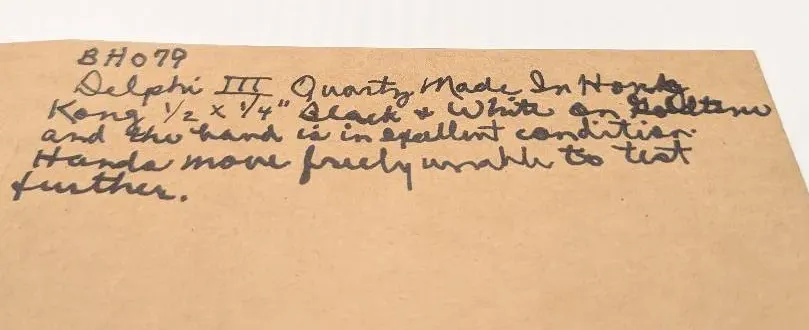 BH079
Delphi III Quartz Made In Hong
Kong 1/2 x 1/4" Black & White on Goldtone
and the band is in exellent condition.
Hands move freely unable to test
further.